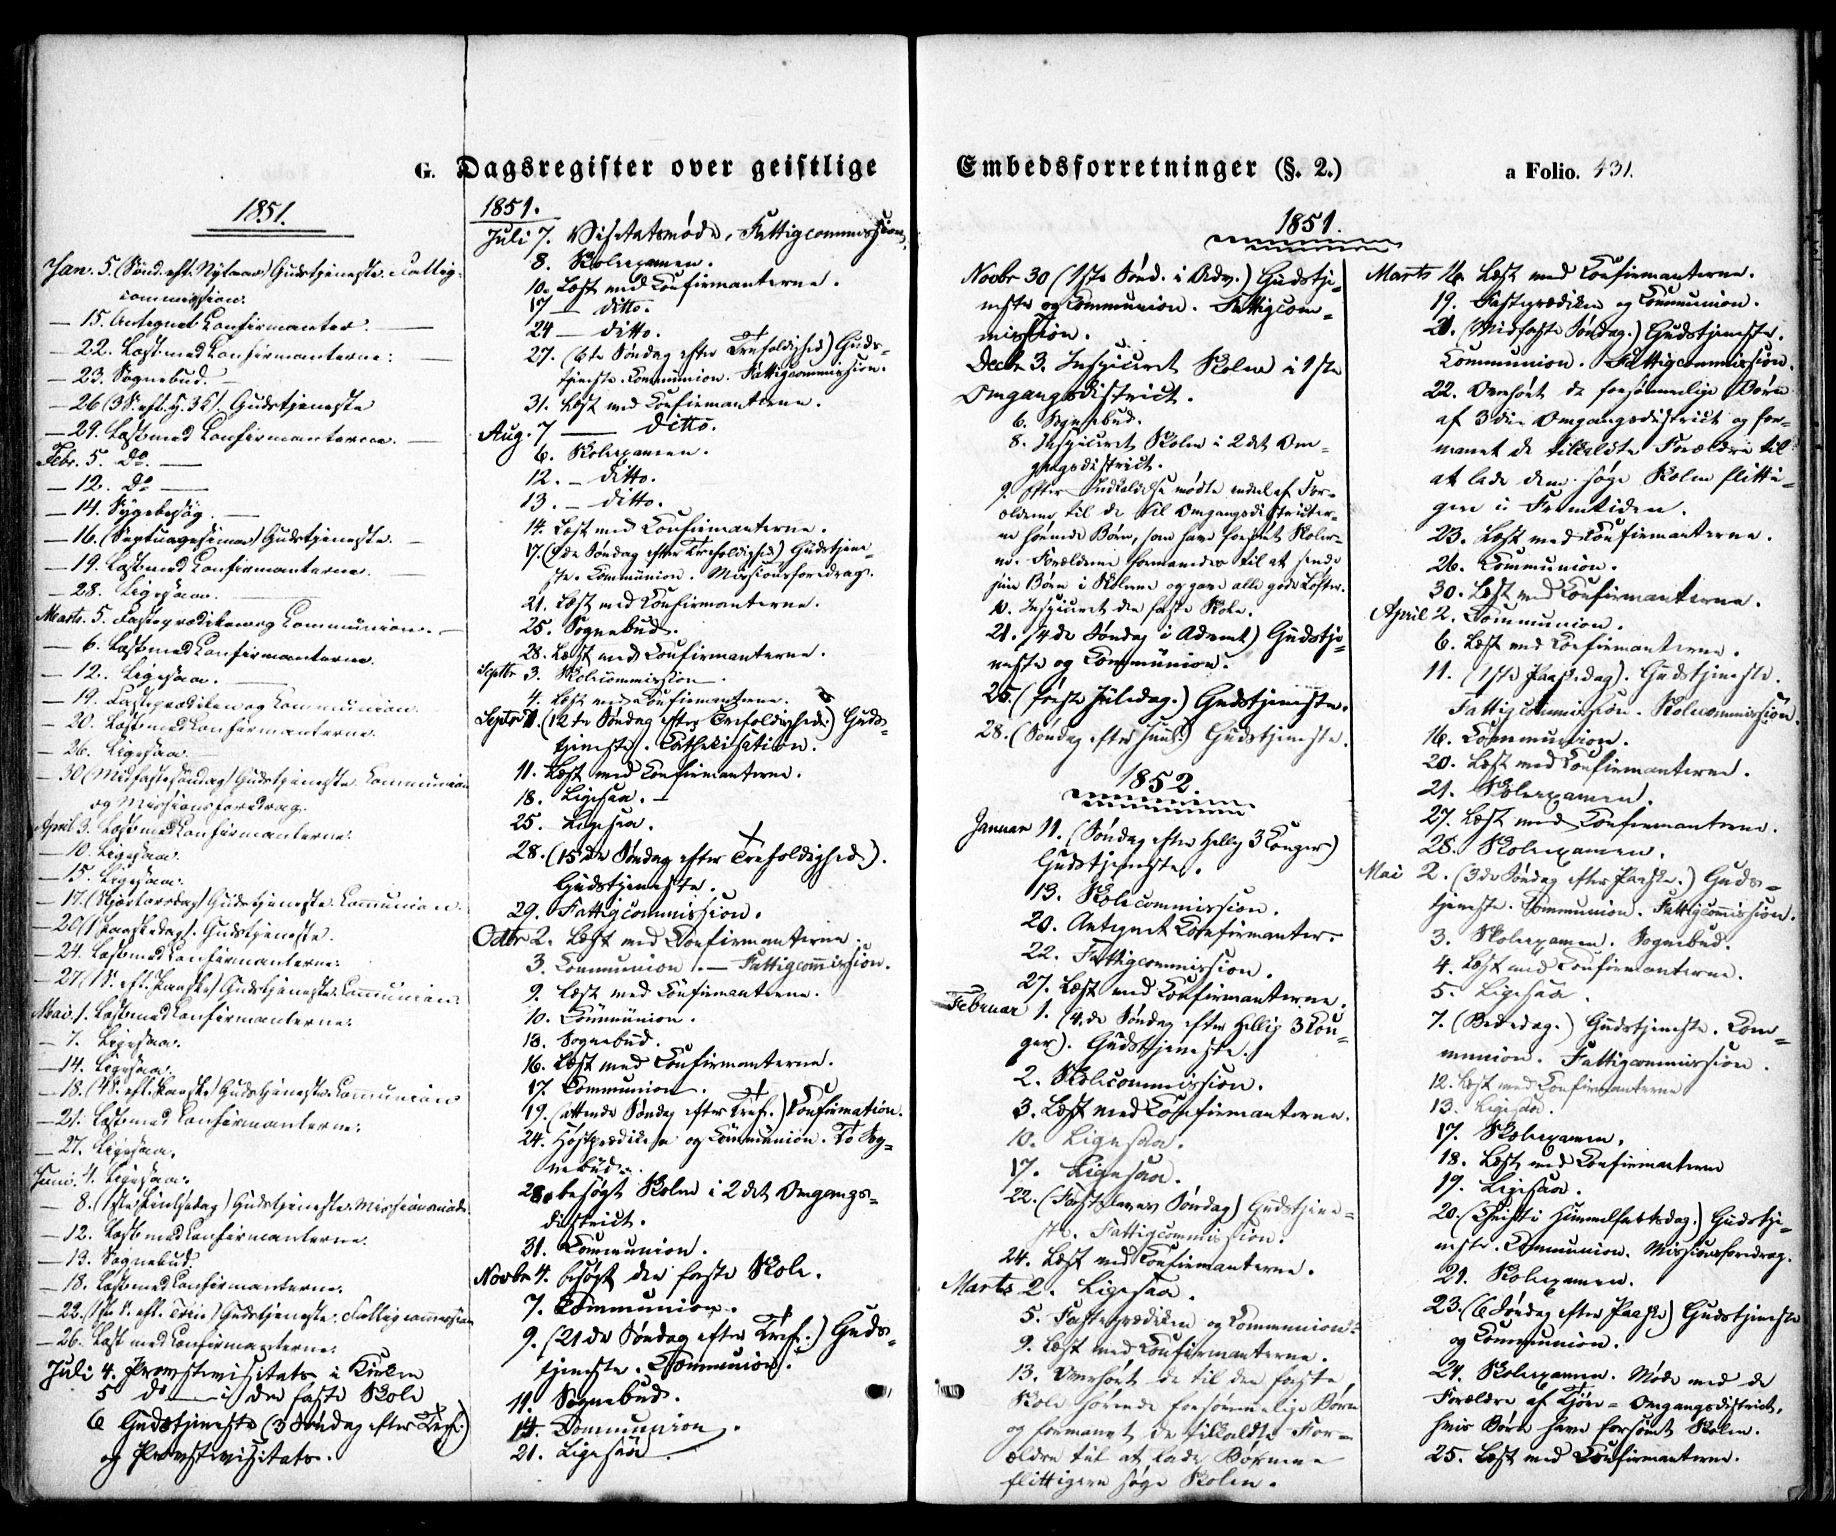 G. Dagsregister over geistlige
1851.
Jan. 5. (Sønd. eft. Nytaar) Gudstjeneste. Fattig-
commission.
— 15. Antegnet Confirmanter. —
— 22. Læst med Confirmanterne. —
— 23. Sognebud. —
— 26 (3 S. eft. H. 3 K.) Gudstjeneste
— 29. Læst med Confirmanterne. —
Febr. 5. Do. —
— 12. Do —
— 14. Sygebesøg. —
— 16. (Septuagesima) Gudstjeneste. —
— 19. Læst med Confirmanterne. —
— 28. Ligesaa. —
Marts. 5. Fasteprædiken og Communion. —
— 6. Læst med Confirmanterne.
— 12. Ligesaa. —
— 19. Fasteprædiken og Communion.
— 20. Læst med Confirmanterne.
— 26. Ligesaa.
— 30 (Midfastesøndag) Gudstjeneste. Communion
og Missionsforedrag.
April 3. Læst med Confirmanterne.
— 10. Ligesaa.
— 15. Ligesaa.
— 17. (Skjærtorsdag) Gudstjeneste. Communion.
— 20 (1 Paaskedag). Gudstjeneste.
— 24. Læst med Confirmanterne.
— 27. (1 S. eft. Paaske) Gudstjeneste. Communion.
Mai. 1. Læst med Confirmanterne.
— 7. Ligesaa.
— 14. Ligesaa.
— 18. (4 S. eft. Paaske) Gudstjeneste. Communion
— 21. Læst med Confirmanterne.
— 27. Ligesaa.
Juni. 4. Ligesaa.
— 8. (1ste Pintsedag) Gudstjeneste. Missionsmøde.
— 12. Læst med Confirmanterne.
— 13. Sognebud.
— 18. Læst med Confirmanterne.
— 22. (1ste S. eft. Trin) Gudstjeneste. Fattigcommission
— 26. Læst med Confirmanterne.
Juli 4. Provstevisitats i Kirken
5 do — i den faste Skole
6 Gudstjeneste (3 Søndag efter Tref.)
og Provstevisitats.
1851.
Juli 7. Visitatsmøde, Fattigcommission.
8. Skoleexamen.
10. Læst med Confirmanterne.
17 — ditto.
24 — ditto.
27. (6te Søndag efter Trefoldighed) Guds-
tjeneste. Communion. Fattigcommission.
31. Læst med Confirmanterne.
Aug. 7 — ditto.
6. Skoleexamen.
12. — ditto.
13. — ditto.
14. Læst med Confirmanterne.
17. (9de Søndag efter Trefoldighed) Gudstjene-
ste. Communion. Missionsforedrag.
21. Læst med Confirmanterne.
25. Sognebud.
28. Læst med Confirmanterne.
Septbr 3. Skolecommission.
4. Læst med Confirmanterne.
Septbr 7. (12te Søndag efter Trefoldighed.) Guds-
tjeneste. Cathekisation.
11. Læst med Confirmanterne.
18. Ligesaa. —
25. Ligesaa.
28. (15de Søndag efter Trefoldighed.)
Gudstjeneste.
29. Fattigcommission.
Octbr 2. Læst med Confirmanterne.
3. Communion. — Fattigcommission.
9. Læst med Confirmanterne.
10. Communion.
13. Sognebud.
16. Læst med Confirmanterne.
17. Communion.
19. (attende Søndag efter Tref.) Confirmation.
24. Høstprædiken og Communion. To Sog-
nebud.
28. besøgt Skolen i 2det Omgangs-
district.
31. Communion.
Novbr 4. besøgt den faste Skole.
7. Communion.
9. (21de Søndag efter Tref.) Guds-
tjeneste. Communion.
11. Sognebud.
14. Communion.
21. Ligesaa.
Embedsforretninger (§. 2.)
a Folio. 431.
1851.
Novbr 30 (1ste Sønd. i Adv.) Gudstje-
neste og Communion. Fattigcom-
mission.
Decbr 3. Inspiceret Skolen i 1ste
Omgangsdistrict.
6. Sognebud.
8. Inspiceret Skolen i 2det Om-
gangsdistrict.
9. Efter Indkaldelse mødte endel af For-
ældrene til de til Omgangsdistricter-
ne hørende Børn, som have forsømt Skoler-
ne. Forældrene formanedes til at sende
sine Børn i Skolerne og gave alle gode Løfter.
10. Inspiceret den faste Skole.
21. (4de Søndag i Advent) Gudstje-
neste og Communion.
25. (første Juledag.) Gudstjeneste.
28. (Søndag efter Juul.) Gudstjeneste.
1852.
Januar 11. (Søndag efter Hellig 3 Konger)
Gudstjeneste.
13. Skolecommission.
20. Antegnet Confirmanter.
22. Fattigcommission.
27. Læst med Confirmanterne.
Februar 1. (4de Søndag efter Hellig 3 Kon-
ger). Gudstjeneste.
2. Skolecommission.
3. Læst med Confirmanterne.
10. Ligesaa.
17. Ligesaa.
22. (Fastelavens Søndag) Gudstjene-
ste. Fattigcommission.
24. Læst med Confirmanterne.
Marts 2. Ligesaa.
5. Fasteprædiken og Communion.
9. Læst med Confirmanterne.
13. Overhørt de til den faste
Skole hørende forsømmelige Børn
og formanet de tilkaldte For-
ældre til at lade Børnene
flittigere søge Skolen.
Marts 16. Læst med Confirmanterne.
19. Fasteprædiken og Communion.
21. (Midfaste Søndag.) Gudstjeneste.
Communion. Fattigcommission.
22. Overhørt de forsømmelige Børn
af 3die Omgangsdistrict og for-
manet de tilkaldte Forældre til
at lade dem søge Skolen flitti-
gere i Fremtiden.
23. Læst med Confirmanterne.
26. Communion.
30. Læst med Confirmanterne.
April 2. Communion.
6. Læst med Confirmanterne.
11. (1ste Paaskedag). Gudstjeneste.
Fattigcommission. Skolecommission.
16. Communion.
20. Læst med Confirmanterne.
21. Skoleexamen.
27. Læst med Confirmanterne.
28. Skoleexamen.
Mai 2. (3de Søndag efter Paaske.) Guds-
tjeneste. Communion. Fattigcommission.
3. Skoleexamen. Sognebud.
4. Læst med Confirmanterne.
5. Ligesaa.
7. (Bededag.) Gudstjeneste. Com-
munion. Fattigcommission.
12. Læst med Confirmanterne
13. Ligesaa.
17. Skoleexamen.
18. Læst med Confirmanterne
19. Ligesaa.
20. (Christi Himmelfartsdag.) Gudstje-
neste. Communion. Missionsforedrag.
21. Skoleexamen.
23. (6 Søndag efter Paaske) Gudstjeneste
og Communion.
24. Skoleexamen. Møde med de
Forældre af Omgangsdistrict,
hvis Børn have forsømt Skolen.
25. Læst med Confirmanterne.